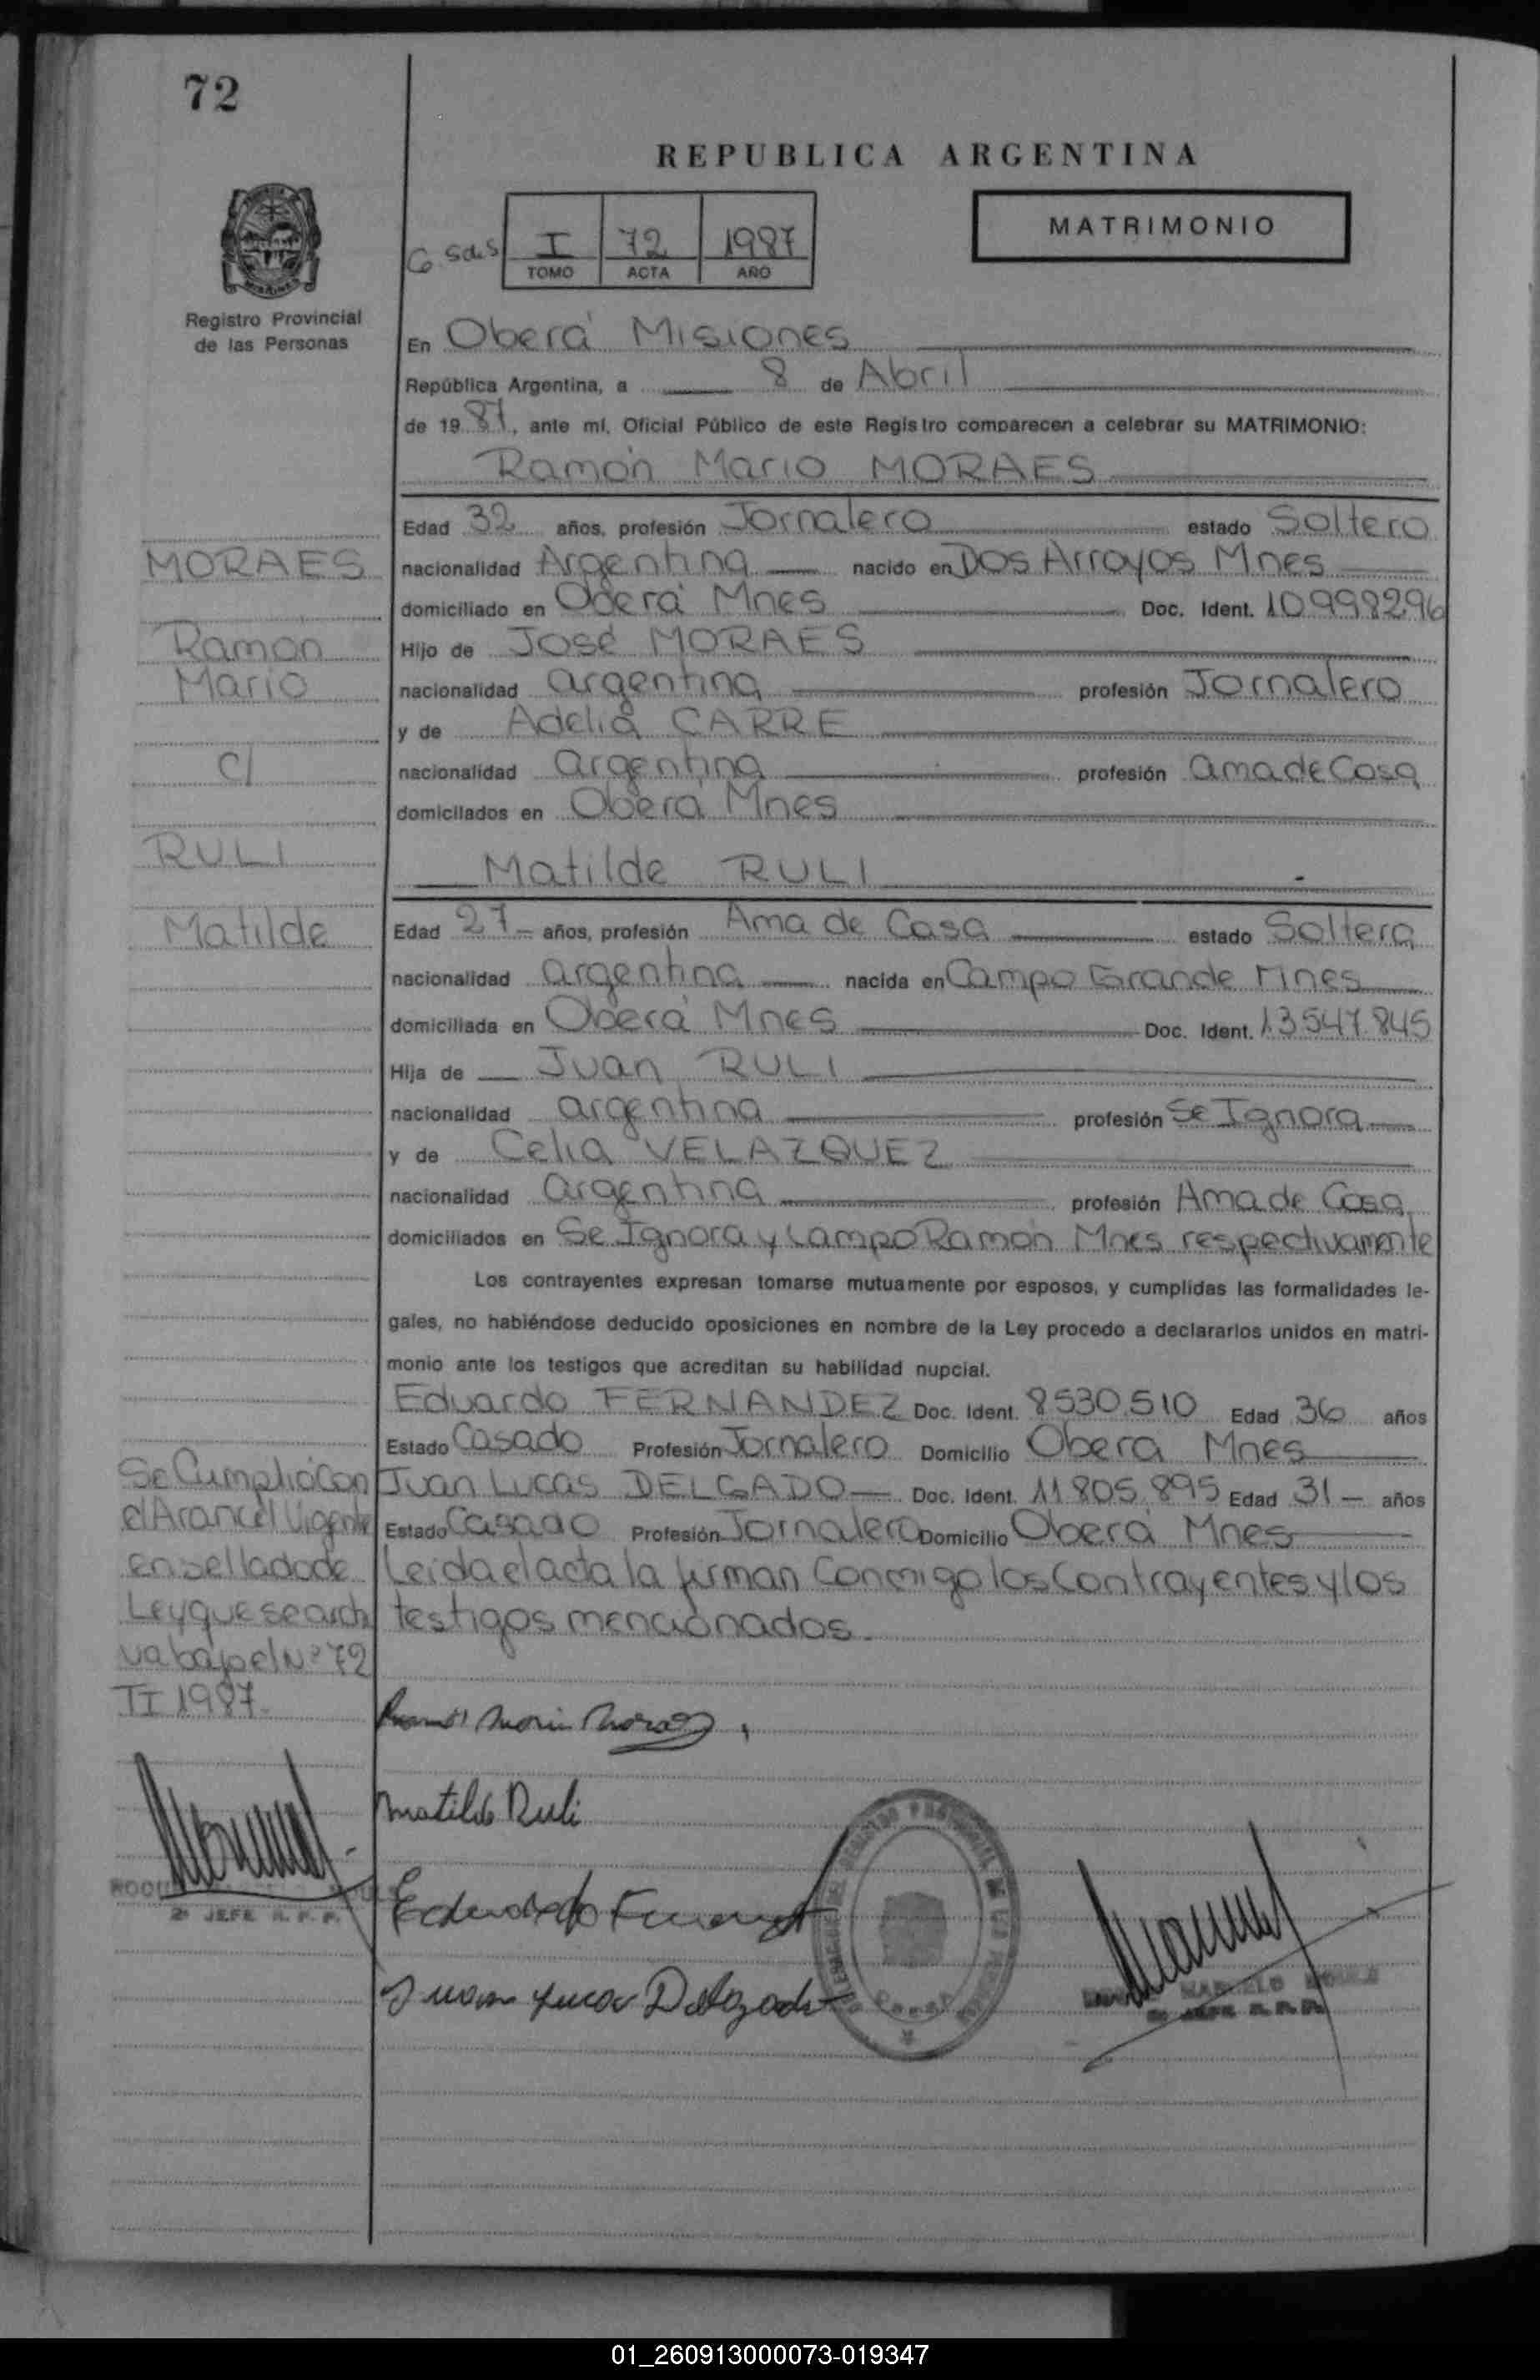 72
REPUBLICA ARGENTINA
MATRIMONIO
I 72 1987
TOMO ACTA AÑO
Registro Provincial
de las Personas
En Oberá Misiones
República Argentina, a 8 de Abril
de 1987, ante mí, Oficial Público de este Registro comparecen a celebrar su MATRIMONIO:
Ramón Mario MORAES
Edad 32 años, profesión Jornalero estado Soltero
MORAES
nacionalidad Argentina nacido en Dos Arroyos Mnes
domiciliado en Oberá Mnes Doc. Ident. 10998296
Ramon
Hijo de José MORAES
Mario
nacionalidad argentina profesión Jornalero
y de Adelia CARRE
C/
nacionalidad argentina profesión ama de Casa
domiciliados en Oberá Mnes
RULI
Matilde RULI
Matilde
Edad 27 años, profesión Ama de Casa estado Soltera
nacionalidad argentina nacida en Campo Grande Mnes
domiciliada en Oberá Mnes Doc. Ident. 13547845
Hija de Juan RULI
nacionalidad argentina profesión Se Ignora
y de Celia VELAZQUEZ
nacionalidad argentina profesión Ama de Casa
domiciliados en Se Ignora y Campo Ramón Mnes respectivamente
Los contrayentes expresan tomarse mutuamente por esposos, y cumplidas las formalidades le-
gales, no habiéndose deducido oposiciones en nombre de la Ley procedo a declararlos unidos en matri-
monio ante los testigos que acreditan su habilidad nupcial.
Eduardo FERNANDEZ Doc. Ident. 8530.510 Edad 36 años
Estado Casado Profesión Jornalero Domicilio Obera Mnes
Juan Lucas DELGADO Doc. Ident. 11805.895 Edad 31 años
Estado Casado Profesión Jornalero Domicilio Oberá Mnes
Leida el acta la firman Conmigo los Contrayentes y los
testigos mencionados.
Se Cumplió Con
el Arancel Vigente
en sellado de
Ley que se archi
va bajo el Nº 72
TI 1987.
Ramón Mario Moraes
Matilde Ruli
Eduardo Fernandez
Juan Lucas Delgado
2º JEFE R. P. P.
MARCELO
2º JEFE R. P. P.
01_260913000073-019347